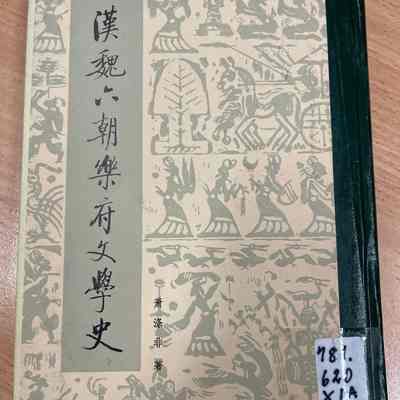 漢魏六朝樂府文學史
蕭滌非著
781.
620
XIA